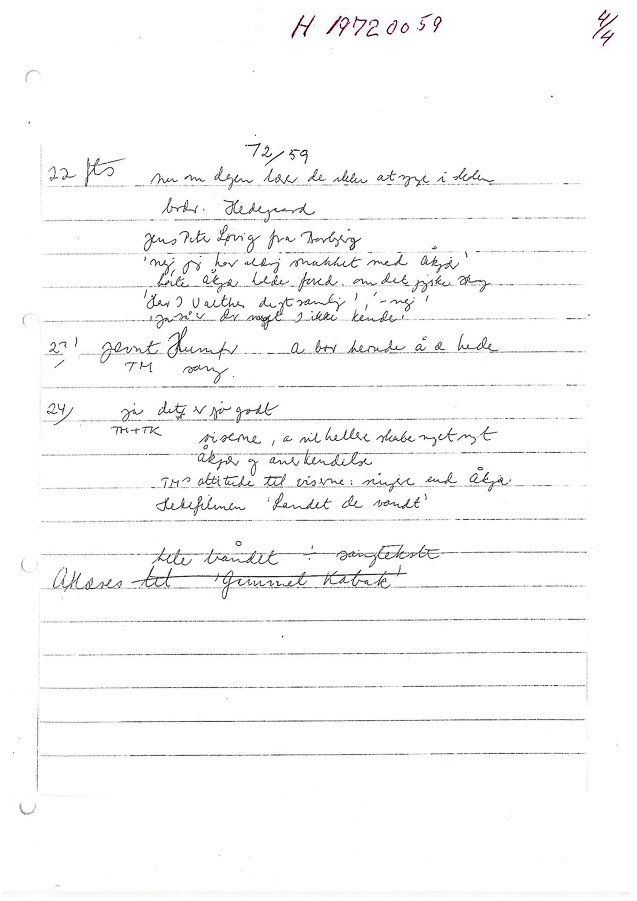 H 19720059 4/4
72/59
22 fts nu om dagen de at i skolen
brdr. Hedegaard
Jens Peter Lovig fra
'nej, jeg har aldrig snakket med Åkjæ'
hørte Åkjær holde fored. om det jyske
'Har I Valther digtsamling', '-nej'
'ja så er der noget I ikke kender'
jævnt Hump a bor herude å æ hede
TM sang.
24/ ja det er jo godt
TM+TK viserne, a vil hellere skabe noget nyt
Åkjær og anerkendelse
TMs attitude til viserne: ringere end Åkjæ
Hedefilmen 'Landet de vandt'
hele båndet ÷ sangtekste
Aflæses til 'Gammel Kabak'